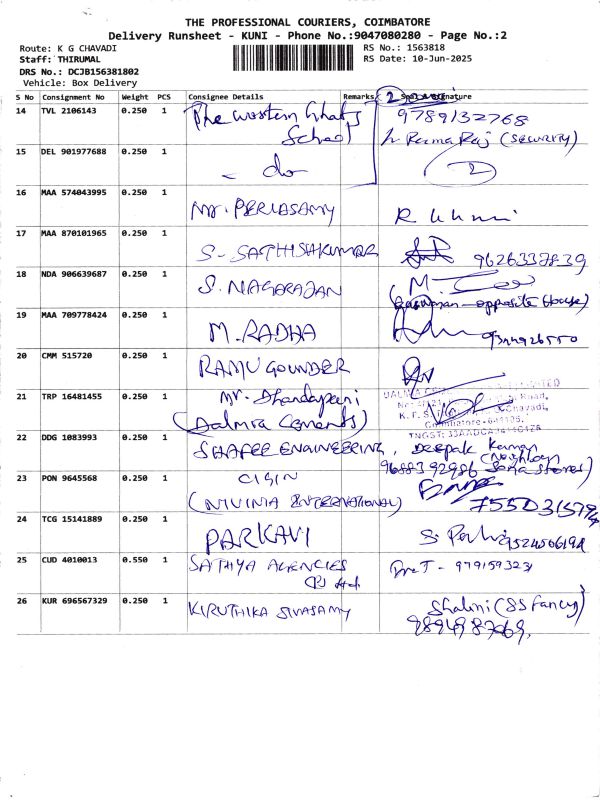 THE PROFESSIONAL COURIERS, COIMBATORE
Delivery Runsheet - KUNI - Phone No.:9047080280 - Page No.:2
Route: K G CHAVADI
RS No.: 1563818
Staff: THIRUMAL
RS Date: 10-Jun-2025
DRS No.: DCJB156381802
Vehicle: Box Delivery
S No Consignment No Weight PCS Consignee Details Remarks Signature
14 TVL 2106143 0.250 1 The western Ghats School 9789132768 (SECURITY)
15 DEL 901977688 0.250 1 - do - 2
16 MAA 574043995 0.250 1 Mr. PERIASAMY
17 MAA 870101965 0.250 1 S-SATHISHKUMAR 9626337839
18 NDA 906639687 0.250 1 S. NAGARAJAN opposite House)
19 MAA 709778424 0.250 1 M. RADHA
20 CMM 515720 0.250 1 RAMU GOUNDER
21 TRP 16481455 0.250 1 Mr. Dhandapani (Dalmia Cements)
22 DDG 1083993 0.250 1 SHAFEE ENGINEERING, Deepak 9688392986 Sona Stores)
23 PON 9645568 0.250 1 (NIVINIA INTERNATIONAL)
24 TCG 15141889 0.250 1 PARKAVI
25 CUD 4010013 0.550 1 SATHYA AGENCIES
26 KUR 696567329 0.250 1 KIRUTHIKA SIVASAMY Shalini (SS Fancy)